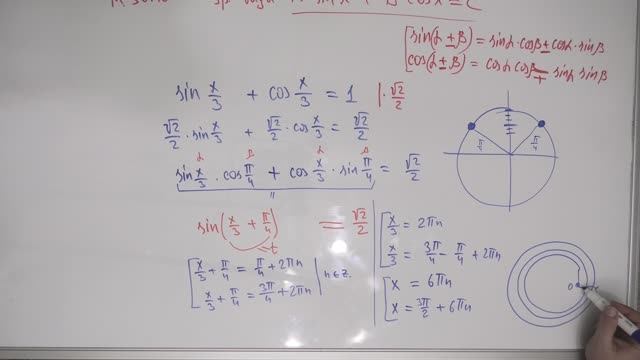 A sinx + B cosx = C
sin(α ± β) = sinα · cosβ ± cosα · sinβ
cos(α ± β) = cosα cosβ ∓ sinα sinβ
sin x/3 + cos x/3 = 1 | · √2/2
√2/2 · sin x/3 + √2/2 · cos x/3 = √2/2
α β α β
sin x/3 · cos π/4 + cos x/3 · sin π/4 = √2/2
"
sin(x/3 + π/4) = √2/2
t
[ x/3 + π/4 = π/4 + 2πn
x/3 + π/4 = 3π/4 + 2πn | n∈Z.
[ x/3 = 2πn
x/3 = 3π/4 - π/4 + 2πn
[ x = 6πn
x = 3π/2 + 6πn
π/4 π/4
0